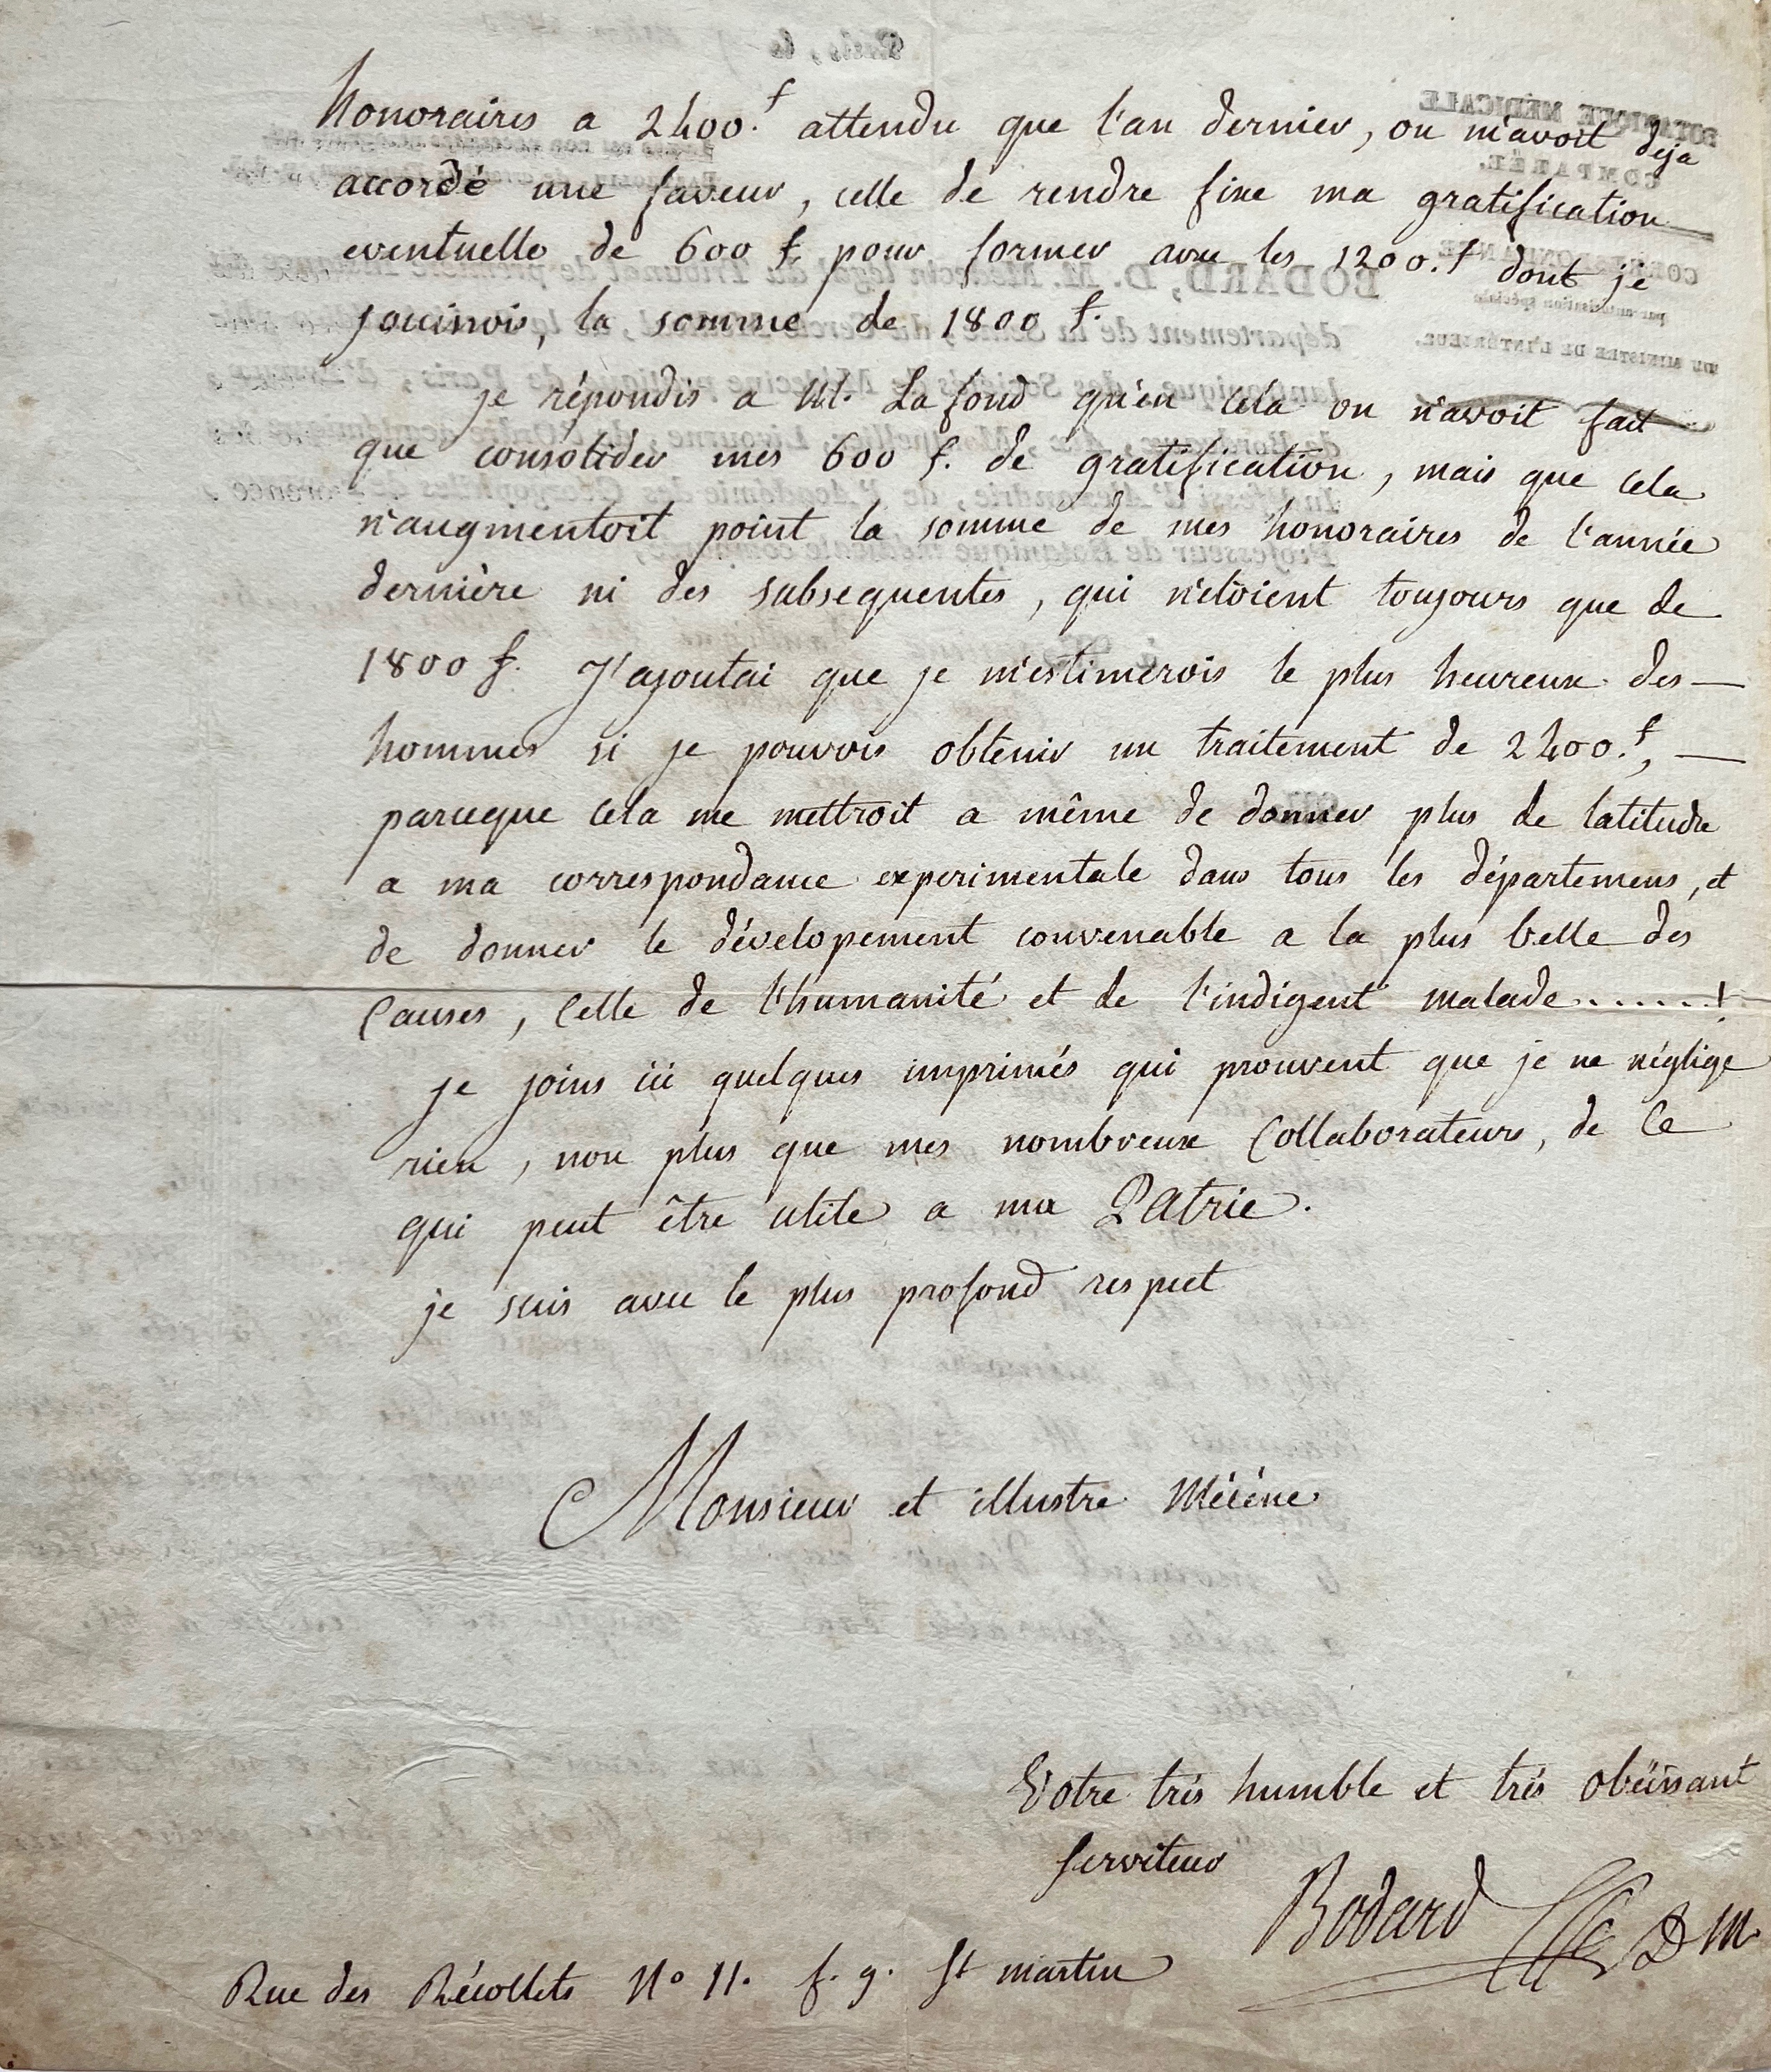 honoraires a 2400.f attendu que l'an dernier, on m'avoit deja
accordé une faveur, celle de rendre fixe ma gratification
eventuelle de 600 f pour former avec les 1200.f dont je
jouissois, la somme de 1800 f.
je répondis a M. Lafond qu'en cela on n'avoit fait
que consolider mes 600 f. de gratification, mais que cela
n'augmentoit point la somme de mes honoraires de l'année
dernière ni des subsequentes, qui n'etoient toujours que de
1800 f. J'ajoutai que je m'estimerois le plus heureux des —
hommes si je pouvois obtenir un traitement de 2400.f, —
parceque cela me mettroit a même de donner plus de latitude
a ma correspondance experimentale dans tous les départemens, et
de donner le dévelopement convenable a la plus belle des
Causes, Celle de l'humanité et de l'indigent malade.......!
je joins ici quelques imprimés qui prouvent que je ne néglige
rien, non plus que mes nombreux Collaborateurs, de Ce
qui peut être utile a ma Patrie.
je suis avec le plus profond respect
Monsieur et illustre Mécène
Votre trés humble et trés obéissant
serviteur
Bodard D M
Rue des Récollets No 11. f. g. St martin